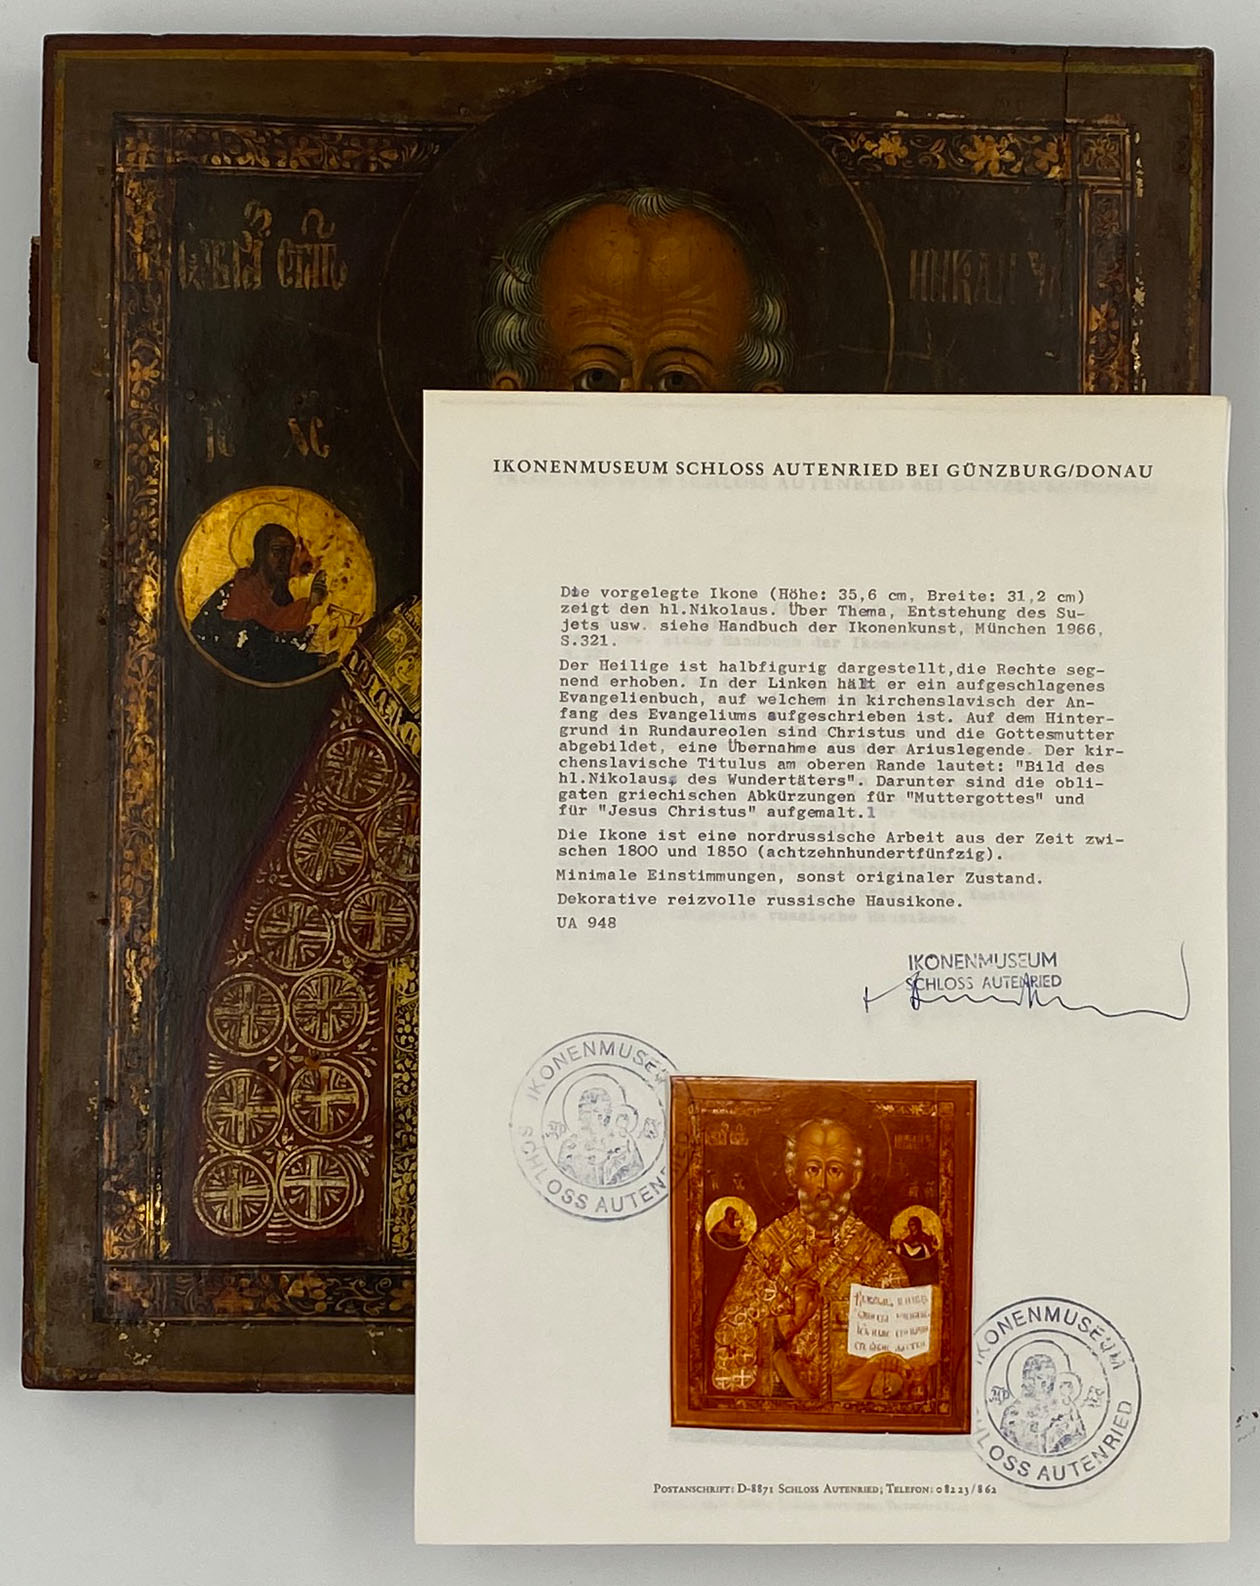 IKONENMUSEUM SCHLOSS AUTENRIED BEI GÜNZBURG/DONAU
Die vorgelegte Ikone (Höhe: 35,6 cm, Breite: 31,2 cm)
zeigt den hl.Nikolaus. Über Thema, Entstehung des Su-
jets usw. siehe Handbuch der Ikonenkunst, München 1966,
S.321.
Der Heilige ist halbfigurig dargestellt,die Rechte seg-
nend erhoben. In der Linken hält er ein aufgeschlagenes
Evangelienbuch, auf welchem in kirchenslavisch der An-
fang des Evangeliums aufgeschrieben ist. Auf dem Hinter-
grund in Rundaureolen sind Christus und die Gottesmutter
abgebildet, eine Übernahme aus der Ariuslegende. Der kir-
chenslavische Titulus am oberen Rande lautet: "Bild des
hl.Nikolaus, des Wundertäters". Darunter sind die obli-
gaten griechischen Abkürzungen für "Muttergottes" und
für "Jesus Christus" aufgemalt.l
Die Ikone ist eine nordrussische Arbeit aus der Zeit zwi-
schen 1800 und 1850 (achtzehnhundertfünfzig).
Minimale Einstimmungen, sonst originaler Zustand.
Dekorative reizvolle russische Hausikone.
UA 948
IKONENMUSEUM
SCHLOSS AUTENRIED
IKONENMUSE
SCHLOSS AUTENRIED
IKONENMUSEUM
LOSS AUTENRIED
POSTANSCHRIFT: D-8871 SCHLOSS AUTENRIED; TELEFON: 08223/862
IC XC